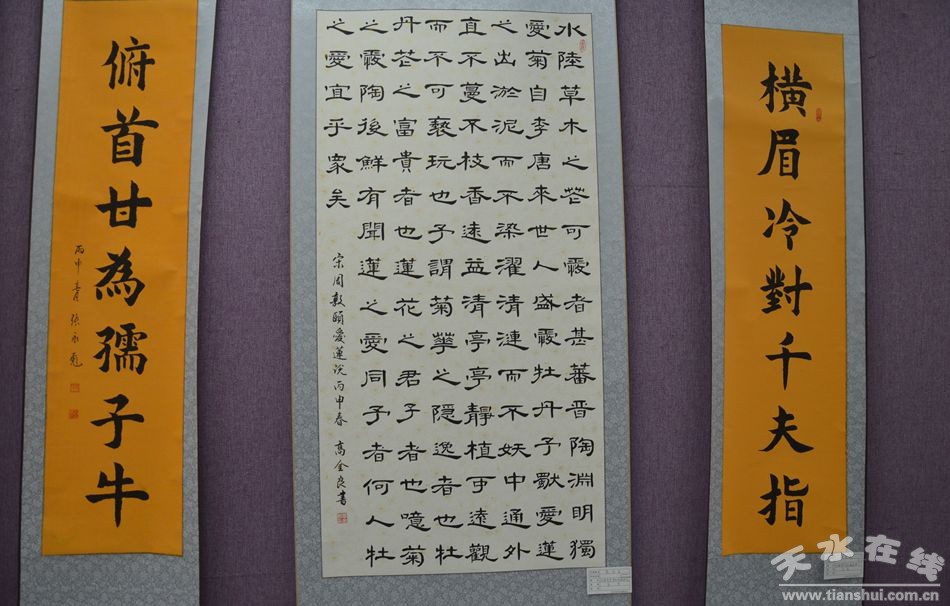 橫眉冷對千夫指
水陸草木之花可愛者甚蕃晉陶淵明獨
愛菊自李唐來世人盛愛牡丹予獨愛蓮
之出淤泥而不染濯清漣而不妖中通外
直不蔓不枝香遠益清亭亭靜植可遠觀
而不可褻玩也予謂菊華之隱逸者也牡
丹花之富貴者也蓮花之君子者也噫菊
之愛陶後鮮有聞蓮之愛同予者何人牡
之愛宜乎眾矣
宋周敦頤愛蓮説丙申春 高全良書
俯首甘為孺子牛
丙申 張永
天水在线
www.tianshui.com.cn